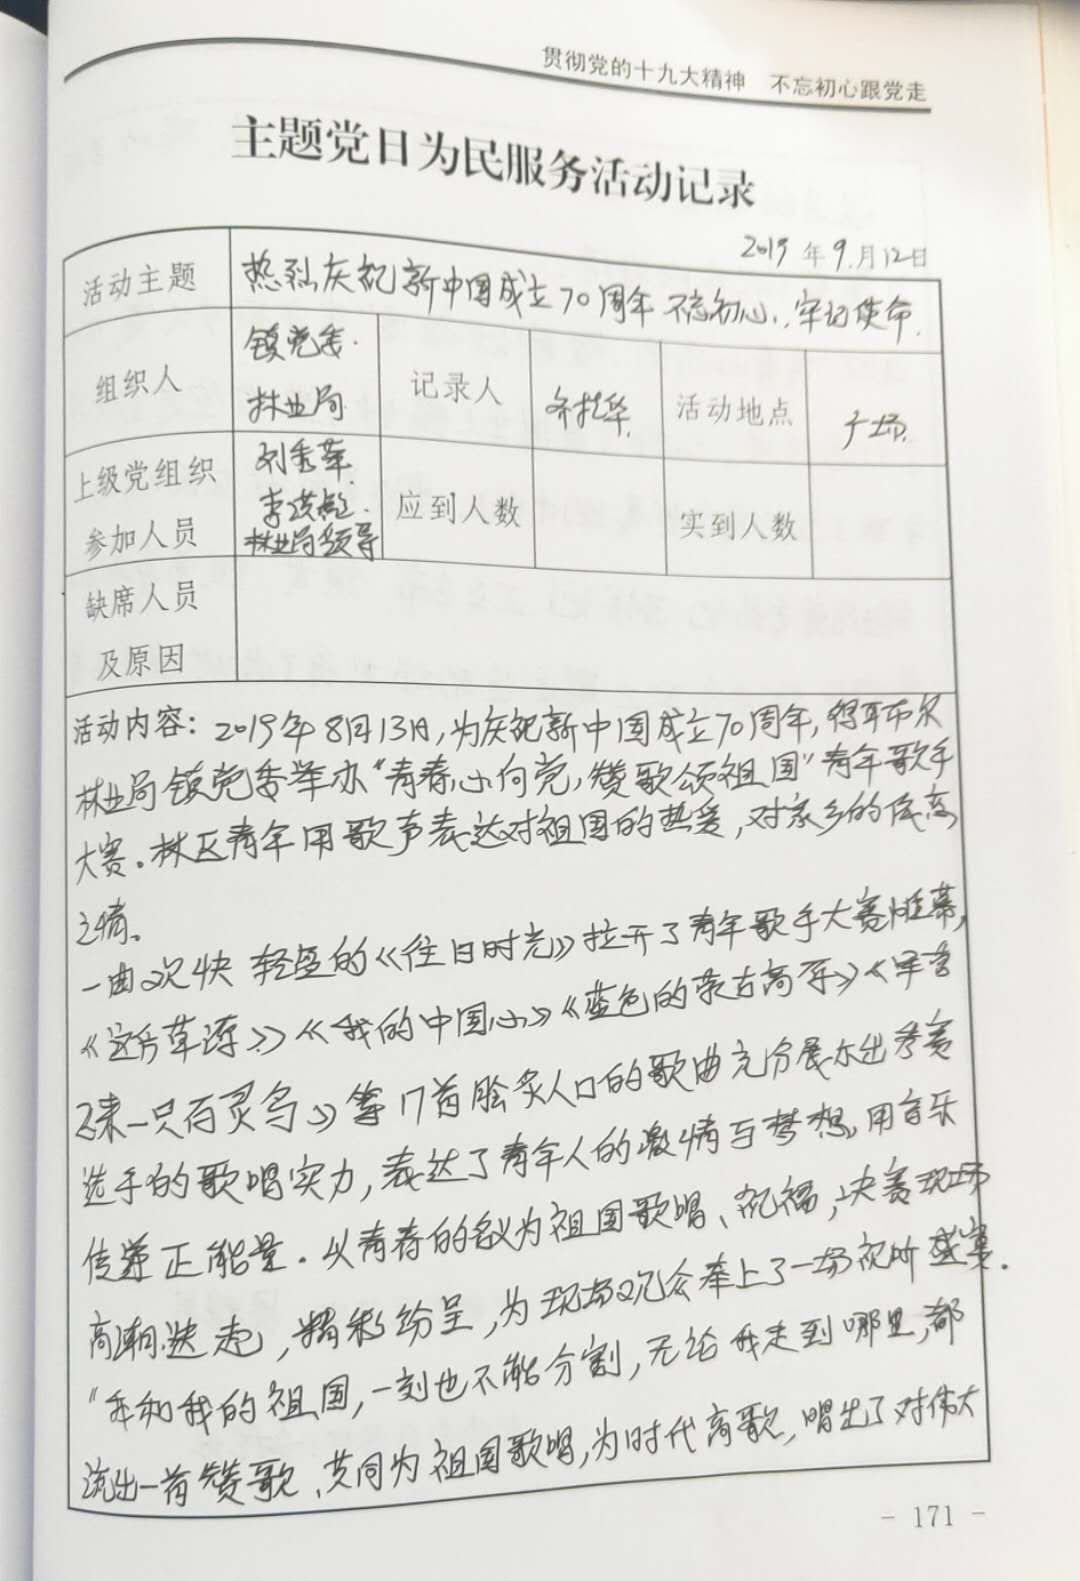 贯彻党的十九大精神 不忘初心跟党走
主题党日为民服务活动记录
2019年9月12日
活动主题 热烈庆祝新中国成立70周年 不忘初心、牢记使命.
组织人 镇党委. 林业局 记录人 活动地点 广场.
上级党组织参加人员 刘秀华. 李洪 林业局领导 应到人数 实到人数
缺席人员及原因
活动内容：2019年8月13日,为庆祝新中国成立70周年,得耳布尔
林业局镇党委举办"青春心向党,赞歌颂祖国"青年歌手
大赛。林区青年用歌声表达对祖国的热爱,对家乡的
之情。
一曲欢快轻盈的《往日时光》拉开了青年歌手大赛帷幕,
《这片草原》《我的中国心》《蓝色的蒙古高原》《军营
飞来一只百灵鸟》等17首脍炙人口的歌曲充分展示出参赛
选手的歌唱实力,表达了青年人的激情与梦想,用音乐
传递正能量.以青春的名义为祖国歌唱、祝福,决赛现场
高潮迭起,精彩纷呈,为现场观众奉上了一场视听盛宴.
"我和我的祖国,一刻也不能分割,无论我走到哪里,都
流出一首赞歌、共同为祖国歌唱,为时代高歌,唱出了对伟大
- 171 -